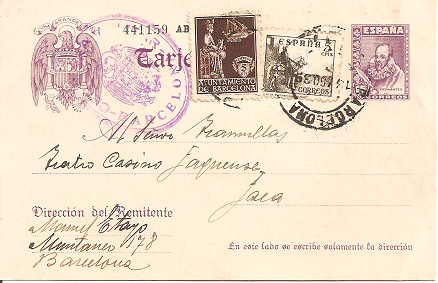 441159 AB
ESPAÑA
Tarje
AYUNTAMIENTO
DE BARCELONA
5
ESPAÑA
5
CTS
CORREOS
BARCELONA
CERVANTES
CORREOS
BARCELONA
Al Señor
Teatro Casino Jaquense
Jaca
Dirección del Remitente
Manuel Etayo
Muntaner 78
Barcelona
En este lado se escribe solamente la dirección